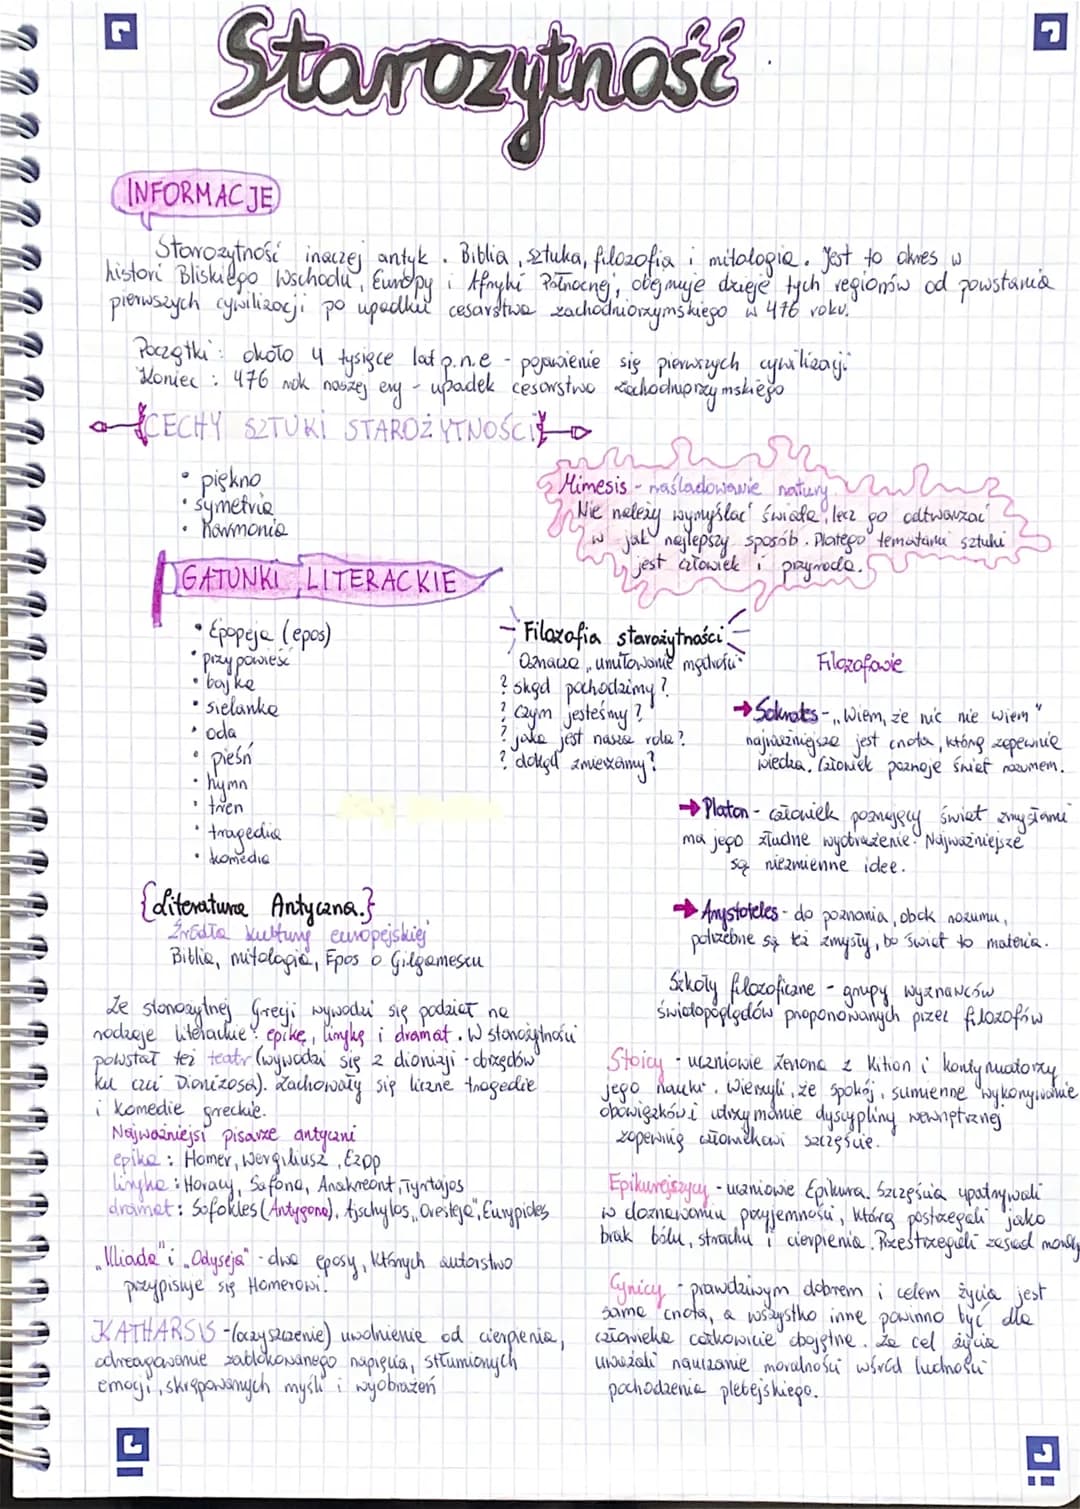 Starożytność
INFORMACJE
Starożytność inaczej antyk. Biblia, sztuka, filozofia i mitologia. Jest to okres w
histori Bliskiego Wschodu, Europy i Afryki Północnej, obejmuje dzieje tych regionów od powstania
pierwszych cywilizacji po upadku cesarstwa zachodniorzymskiego w 476 roku.
Początki: około 4 tysiące lat p.n.e - pojawienie się pierwszych cywilizacji
Koniec: 476 rok naszej ery - upadek cesarstwa zachodniorzymskiego
CECHY SZTUKI STAROŻYTNOŚCI
• piękno
• symetria
• harmonia
Mimesis - naśladowanie natury.
Nie należy wymyślać świata, lecz go odtwarzać
w jak najlepszy sposób. Dlatego tematami sztuki
jest człowiek i przyroda.
GATUNKI LITERACKIE
• Epopeja (epos)
• przypowieść
• bajka
• sielanka
• oda
• pieśń
• hymn
• tren
• tragedia
• komedia
Filozofia starożytności
Oznacza „umiłowanie mądrości"
? skąd pochodzimy?
? czym jesteśmy?
? jaka jest nasza rola?
? dokąd zmierzamy?
Filozofowie
→ Sokrates - „Wiem, że nic nie wiem"
najważniejsza jest cnota, którą zapewnia
wiedza. Człowiek poznaje świat rozumem.
→ Platon - człowiek poznający świat zmysłami
ma jego złudne wyobrażenie. Najważniejsze
są niezmienne idee.
→ Arystoteles - do poznania, obok rozumu,
potrzebne są też zmysły, bo świat to materia.
Szkoły filozoficzne - grupy wyznawców
światopoglądów proponowanych przez filozofów
Stoicy - uczniowie Zenona z Kition i kontynuatorzy
jego nauki. Wierzyli, że spokój, sumienne wykonywanie
obowiązków i utrzymanie dyscypliny wewnętrznej
zapewnią człowiekowi szczęście.
Epikurejczycy - uczniowie Epikura. Szczęścia upatrywali
w doznawaniu przyjemności, którą postrzegali jako
brak bólu, strachu i cierpienia. Przestrzegali zasad
Cynicy - prawdziwym dobrem i celem życia jest
sama cnota, a wszystko inne powinno być dla
człowieka całkowicie obojętne. Za cel życia
uważali nauczanie moralności wśród ludności
pochodzenia plebejskiego.
{Literatura Antyczna.}
Źródła kultury europejskiej
Biblia, mitologia, Epos o Gilgameszu
Ze starożytnej Grecji wywodzi się podział na
rodzaje literackie: epikę, lirykę i dramat. W starożytności
powstał też teatr (wywodzi się z dionizji - obrzędów
ku czci Dionizosa). Zachowały się liczne tragedie
i komedie greckie.
Najważniejsi pisarze antyczni
epika: Homer, Wergiliusz, Ezop
liryka: Horacy, Safona, Anakreont, Tyrtajos
dramat: Sofokles (Antygona), Ajschylos „Oresteja", Eurypides
„Iliada" i „Odyseja" - dwa eposy, których autorstwo
przypisuje się Homerowi.
KATHARSIS - (oczyszczenie) uwolnienie od cierpienia,
odreagowanie zablokowanego napięcia, stłumionych
emocji, skrępowanych myśli i wyobrażeń